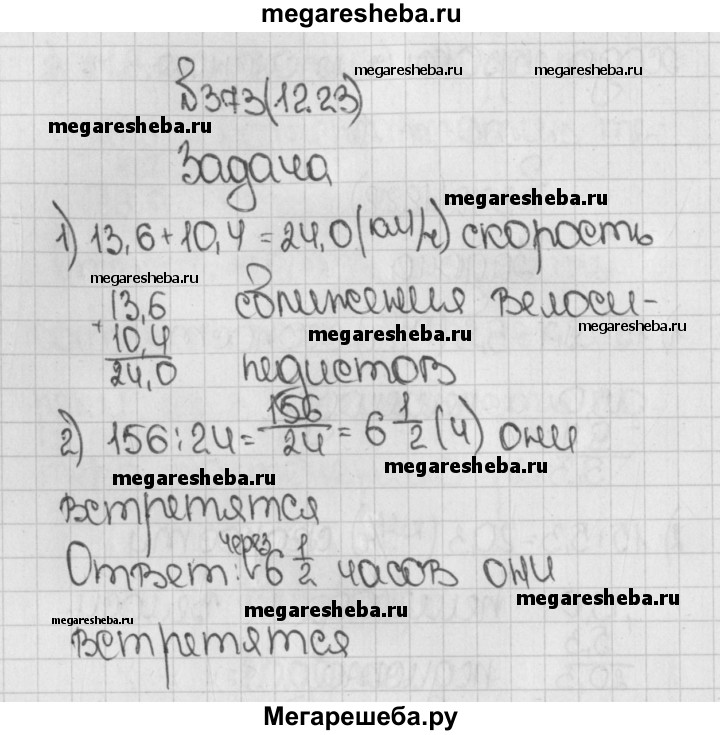 megaresheba.ru
№373(1223)
megaresheba.ru
megaresheba.ru
megaresheba.ru
Задача
megaresheba.ru
1) 13,6+10,4=24,0(км/ч) скорость
megaresheba.ru
13,6 сближения велоси-
+
megaresheba.ru
megaresheba.ru
10,4
24,0 педистов
2) 156:24=156/24=6 1/2 (ч) они
megaresheba.ru
megaresheba.ru
встретятся
через
Ответ: 6 1/2 часов они
megaresheba.ru
megaresheba.ru
встретятся
Мегарешеба.ру